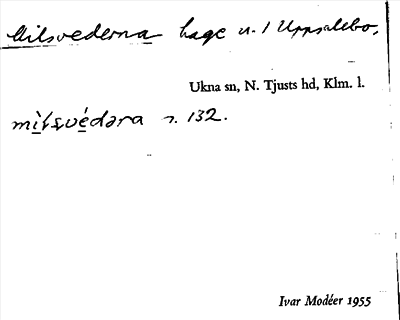 Milsvederna hage n. 1 Uppsalebo.
Ukna sn, N. Tjusts hd, Klm. l.
s. 132.
Ivar Modéer 1955